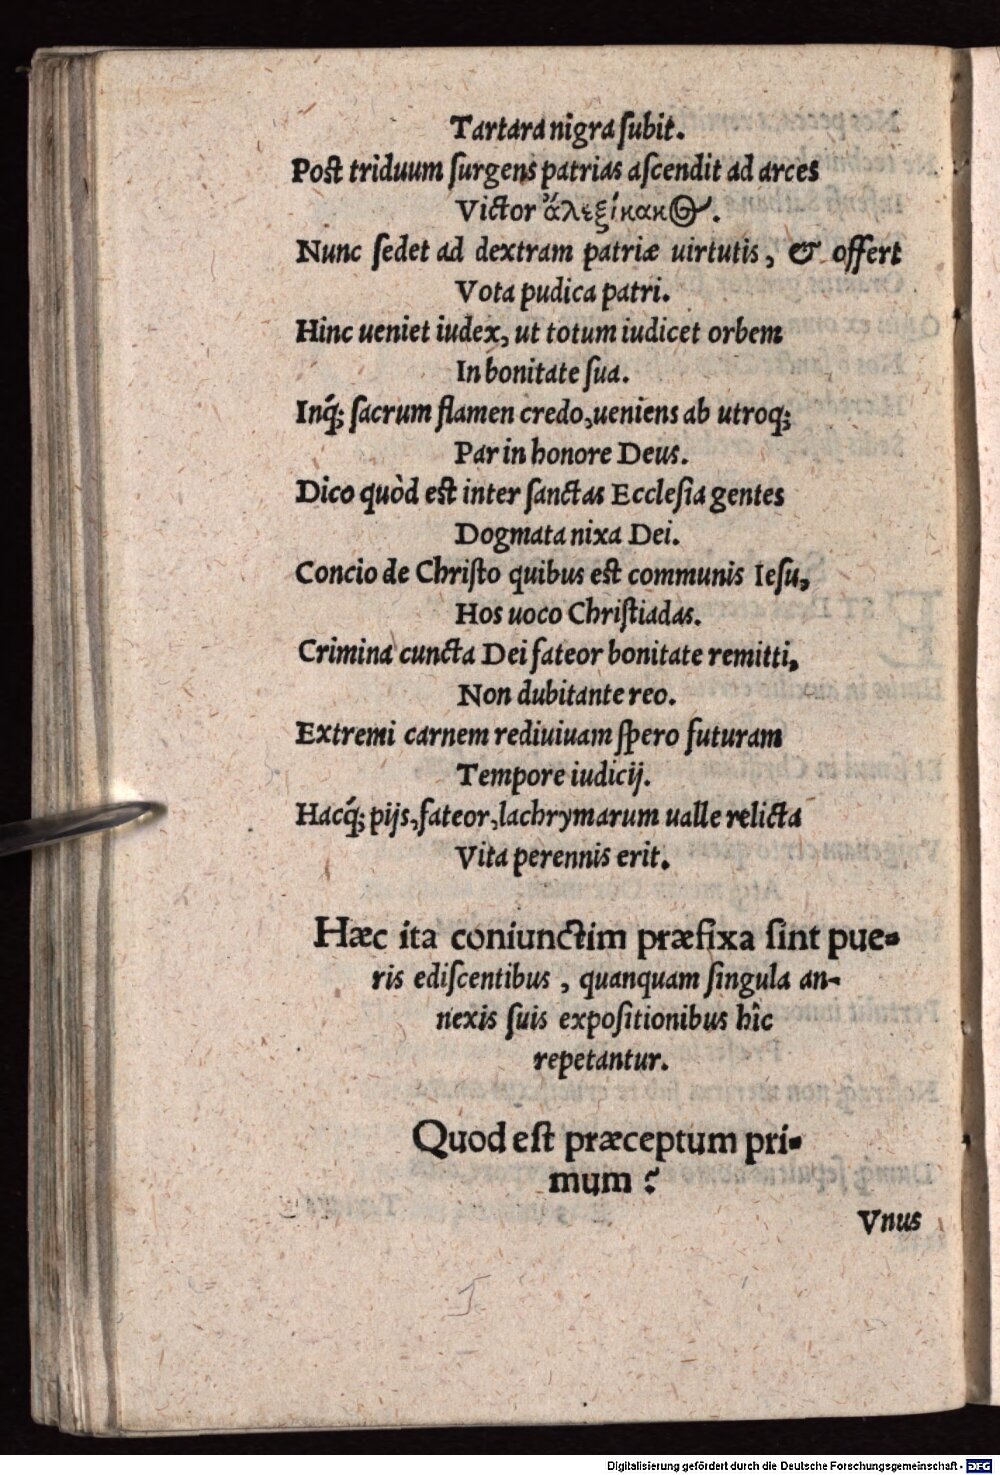 Tartara nigra ſubit.
Poſt triduum ſurgens patrias aſcendit ad arces
Victor ἀλεξίκακος.
Nunc ſedet ad dextram patriæ uirtutis, & offert
Vota pudica patri.
Hinc ueniet iudex, ut totum iudicet orbem
In bonitate ſua.
Inq́; ſacrum flamen credo, ueniens ab utroq;
Par in honore Deus.
Dico quòd eſt inter ſanctas Eccleſia gentes
Dogmata nixa Dei.
Concio de Chriſto quibus eſt communis Ieſu,
Hos uoco Chriſtiadas.
Crimina cuncta Dei fateor bonitate remitti,
Non dubitante reo.
Extremi carnem rediuiuam ſpero futuram
Tempore iudicij.
Hacq́; pijs, fateor, lachrymarum ualle relicta
Vita perennis erit.
Hæc ita coniunctim præfixa ſint pue-
ris ediſcentibus, quanquam ſingula an-
nexis ſuis expoſitionibus hîc
repetantur.
Quod eſt præceptum pri-
mum?
Vnus
Digitalisierung gefördert durch die Deutsche Forschungsgemeinschaft - DFG